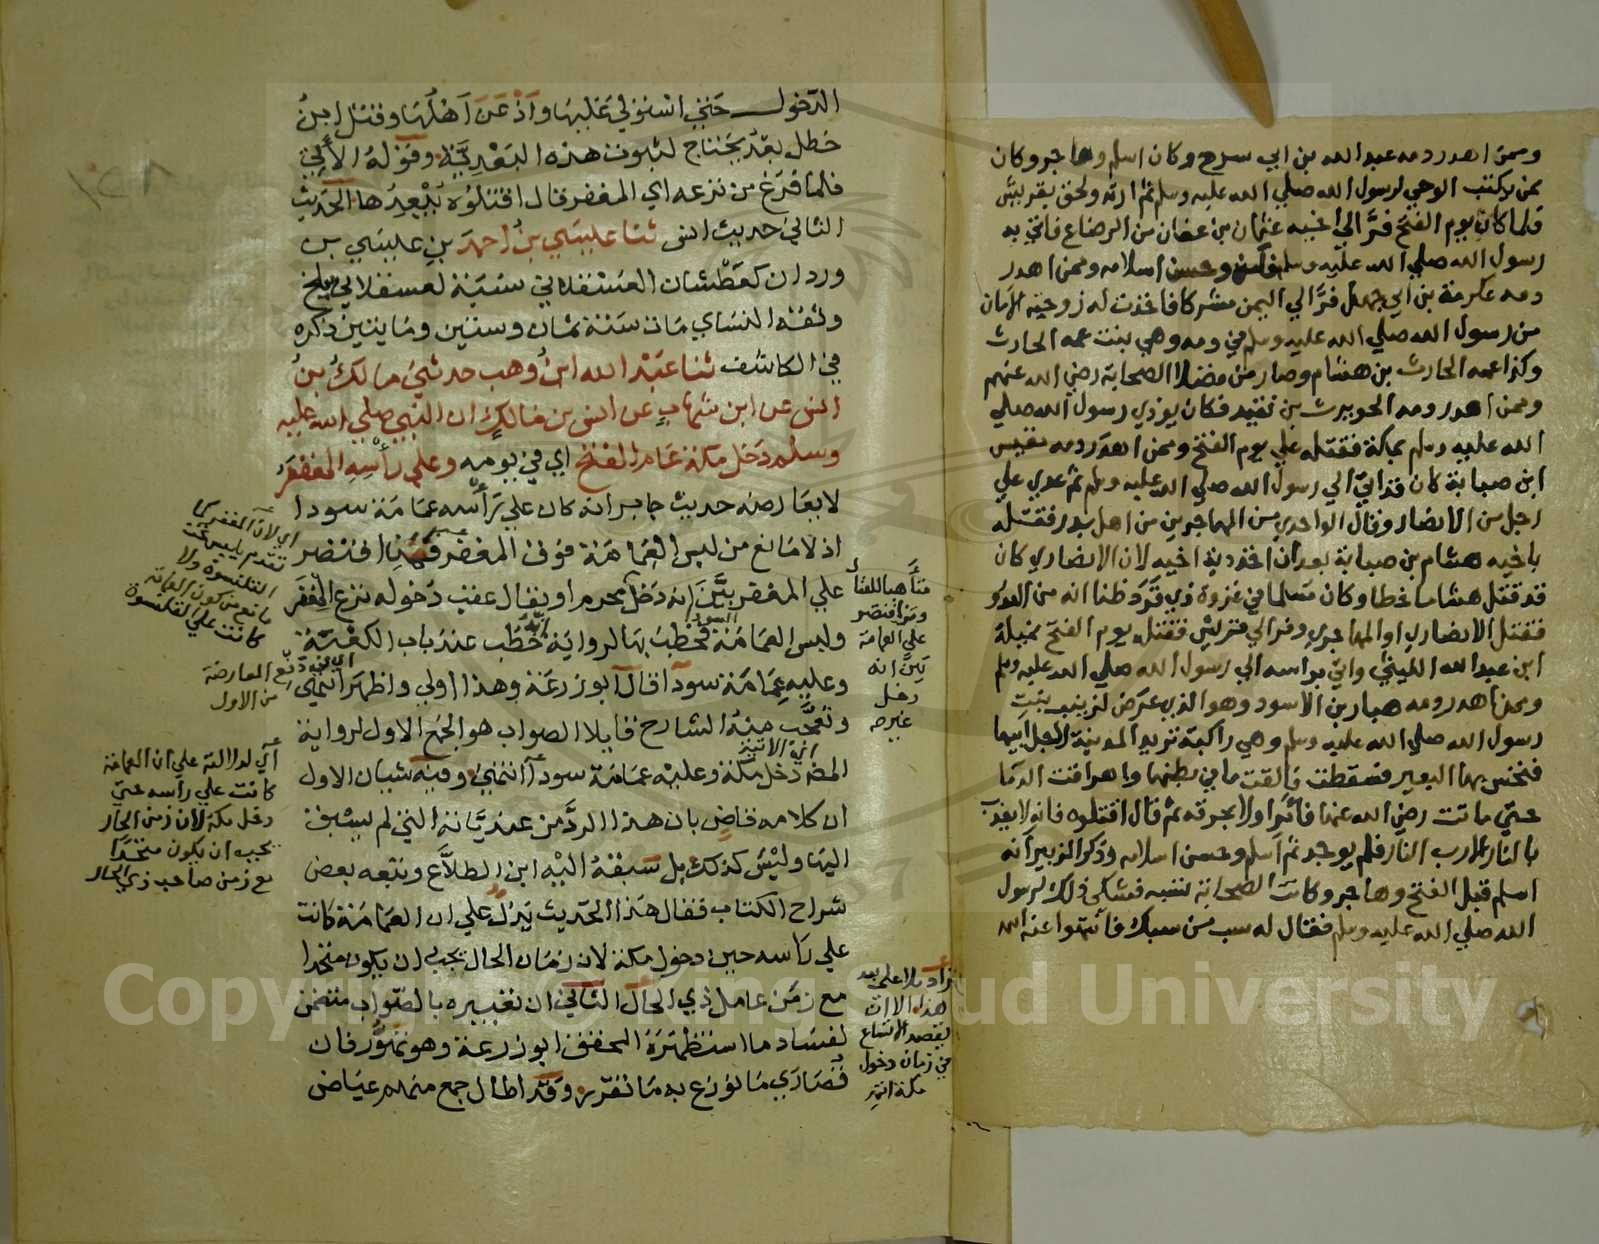 وممن اهدر دمه عبد الله بن ابي سرح وكان اسلم وهاجر وكان
ممن يكتب الوحي لرسول الله صلي الله عليه وسلم ثم ارتد ولحق بقريش
فلما كان يوم الفتح فرَّ الي اخيه عثمان بن عفان من الرضاع فاتي به
رسول الله صلي الله عليه وسلم وحسن اسلامه وممن اهدر
دمه عكرمة بن ابي جهل فرَّ الي اليمن مشركا فاخذت له زوجته الامان
من رسول الله صلي الله عليه وسلم وهي بنت عمه الحارث
وكذا عمه الحارث بن هشام وصار من فضلا الصحابة رضي الله عنهم
وممن اهدر دمه الحويرث بن نقيد فكان يوذي رسول الله صلي
الله عليه وسلم بمكة فقتله علي يوم الفتح وممن اهدر دمه مقيس
ابن صبابة كان قد اتي الي رسول الله صلي الله عليه وسلم ثم عدي علي
رجل من الانصار وقال الواحدي من المهاجرين من اهل بدر فقتله
باخيه هشام بن صبابة بعد ان اخذ دية اخيه لان الانصاري كان
قد قتل هشاما خطا وكان مسلما في غزوة ذي قرد ظنا انه من العدو
فقتل الانصاري او المهاجري وفر الي قريش فقتله يوم الفتح نميلة
ابن عبد الله الليثي واتي براسه الي رسول الله صلي الله عليه وسلم
وممن اهدر دمه هبار بن الاسود وهو الذي عرض لزينب بنت
رسول الله صلي الله عليه وسلم وهي راكبة تريد المدينة لاجل ابيها
فنخس بها البعير فسقطت فالقت ما في بطنها واهراقت الدما
حتي ماتت رضي الله عنها فامروا اولا بحرقه ثم قال اقتلوه فانه لا يعذب
بالنار الا رب النار فلم يوجد ثم اسلم وحسن اسلامه وذكر الزبير انه
اسلم قبل الفتح وهاجر وكانت الصحابة تسبه فشكي ذلك لرسول
الله صلي الله عليه وسلم فقال له سب من سبك فانتهوا عنه اهـ
الدخول حتي استولي عليها واذعن اهلها وقتل ابن
خطل بعد يحتاج لثبوت هذه البعدية وقوله الاتي
فلما فرغ من نزعه اي المغفر قال اقتلوه يبعدها الحديث
الثاني حديث انس ثنا عيسي بن احمد بن عيسي بن
وردان كعطشان العسقلاني نسبة لعسقلان بلخ
وثقه النساي مات سنة ثمان وستين ومايتين ذكره
في الكاشف ثنا عبد الله ابن وهب حدثني مالك بن
انس عن ابن شهاب عن انس بن مالك ان النبي صلي الله عليه
وسلم دخل مكة عام الفتح اي في يومه وعلي راسه المغفر
لا يعارضه حديث جابر انه كان علي راسه عمامة سودا
اذ لا مانع من لبس العمامة فوق المغفر فهنا اقتصر
علي المغفر بين انه دخل محرم او يقال عقب دخوله نزع المغفر
ولبس العمامة السودا فخطب بها لرواية خطب عند باب الكعبة
وعليه عمامة سودا قال ابو زرعة وهذا اولي واظهر انتهي
وتعجب منه الشارح قايلا الصواب هو الجمع الاول لرواية
المص الاتية انه دخل مكة وعليه عمامة سودا انتهي وفيه شيان الاول
ان كلامه قاض بان هذا الرد من عندياته التي لم يسبق
اليها وليس كذلك بل سبقه اليه ابن الطلاع وتبعه بعض
شراح الكتاب فقال هذا الحديث يدل علي ان العمامة كانت
علي راسه حين دخول مكة لان زمان الحال يجب ان يكون متحدا
مع زمن عامل ذي الحال الثاني ان تعبيره بالصواب متضمن
لفساد ما استظهره المحقق ابو زرعة وهو تهور فان
قصاري ما نوزع به ما تقرر وقد اطال جمع منهم عياض
اي لان المغفر كما
تقدم يلبس تحت
القلنسوة ولا
مانع من كون العمامة
كانت علي القلنسوة
المعارضة
من الاول
اي لدلالته علي ان العمامة
كانت علي راسه حين
دخل مكة لان زمن الحال
يجب ان يكون متحدا
مع زمن صاحب ذي الحال
ومن اقتصر
علي العمامة
بين انه
دخل
غير محرم
هذا الا ان
يقصد الاتساع
في زمان دخول
مكة انتهي
Copyright © King Saud University